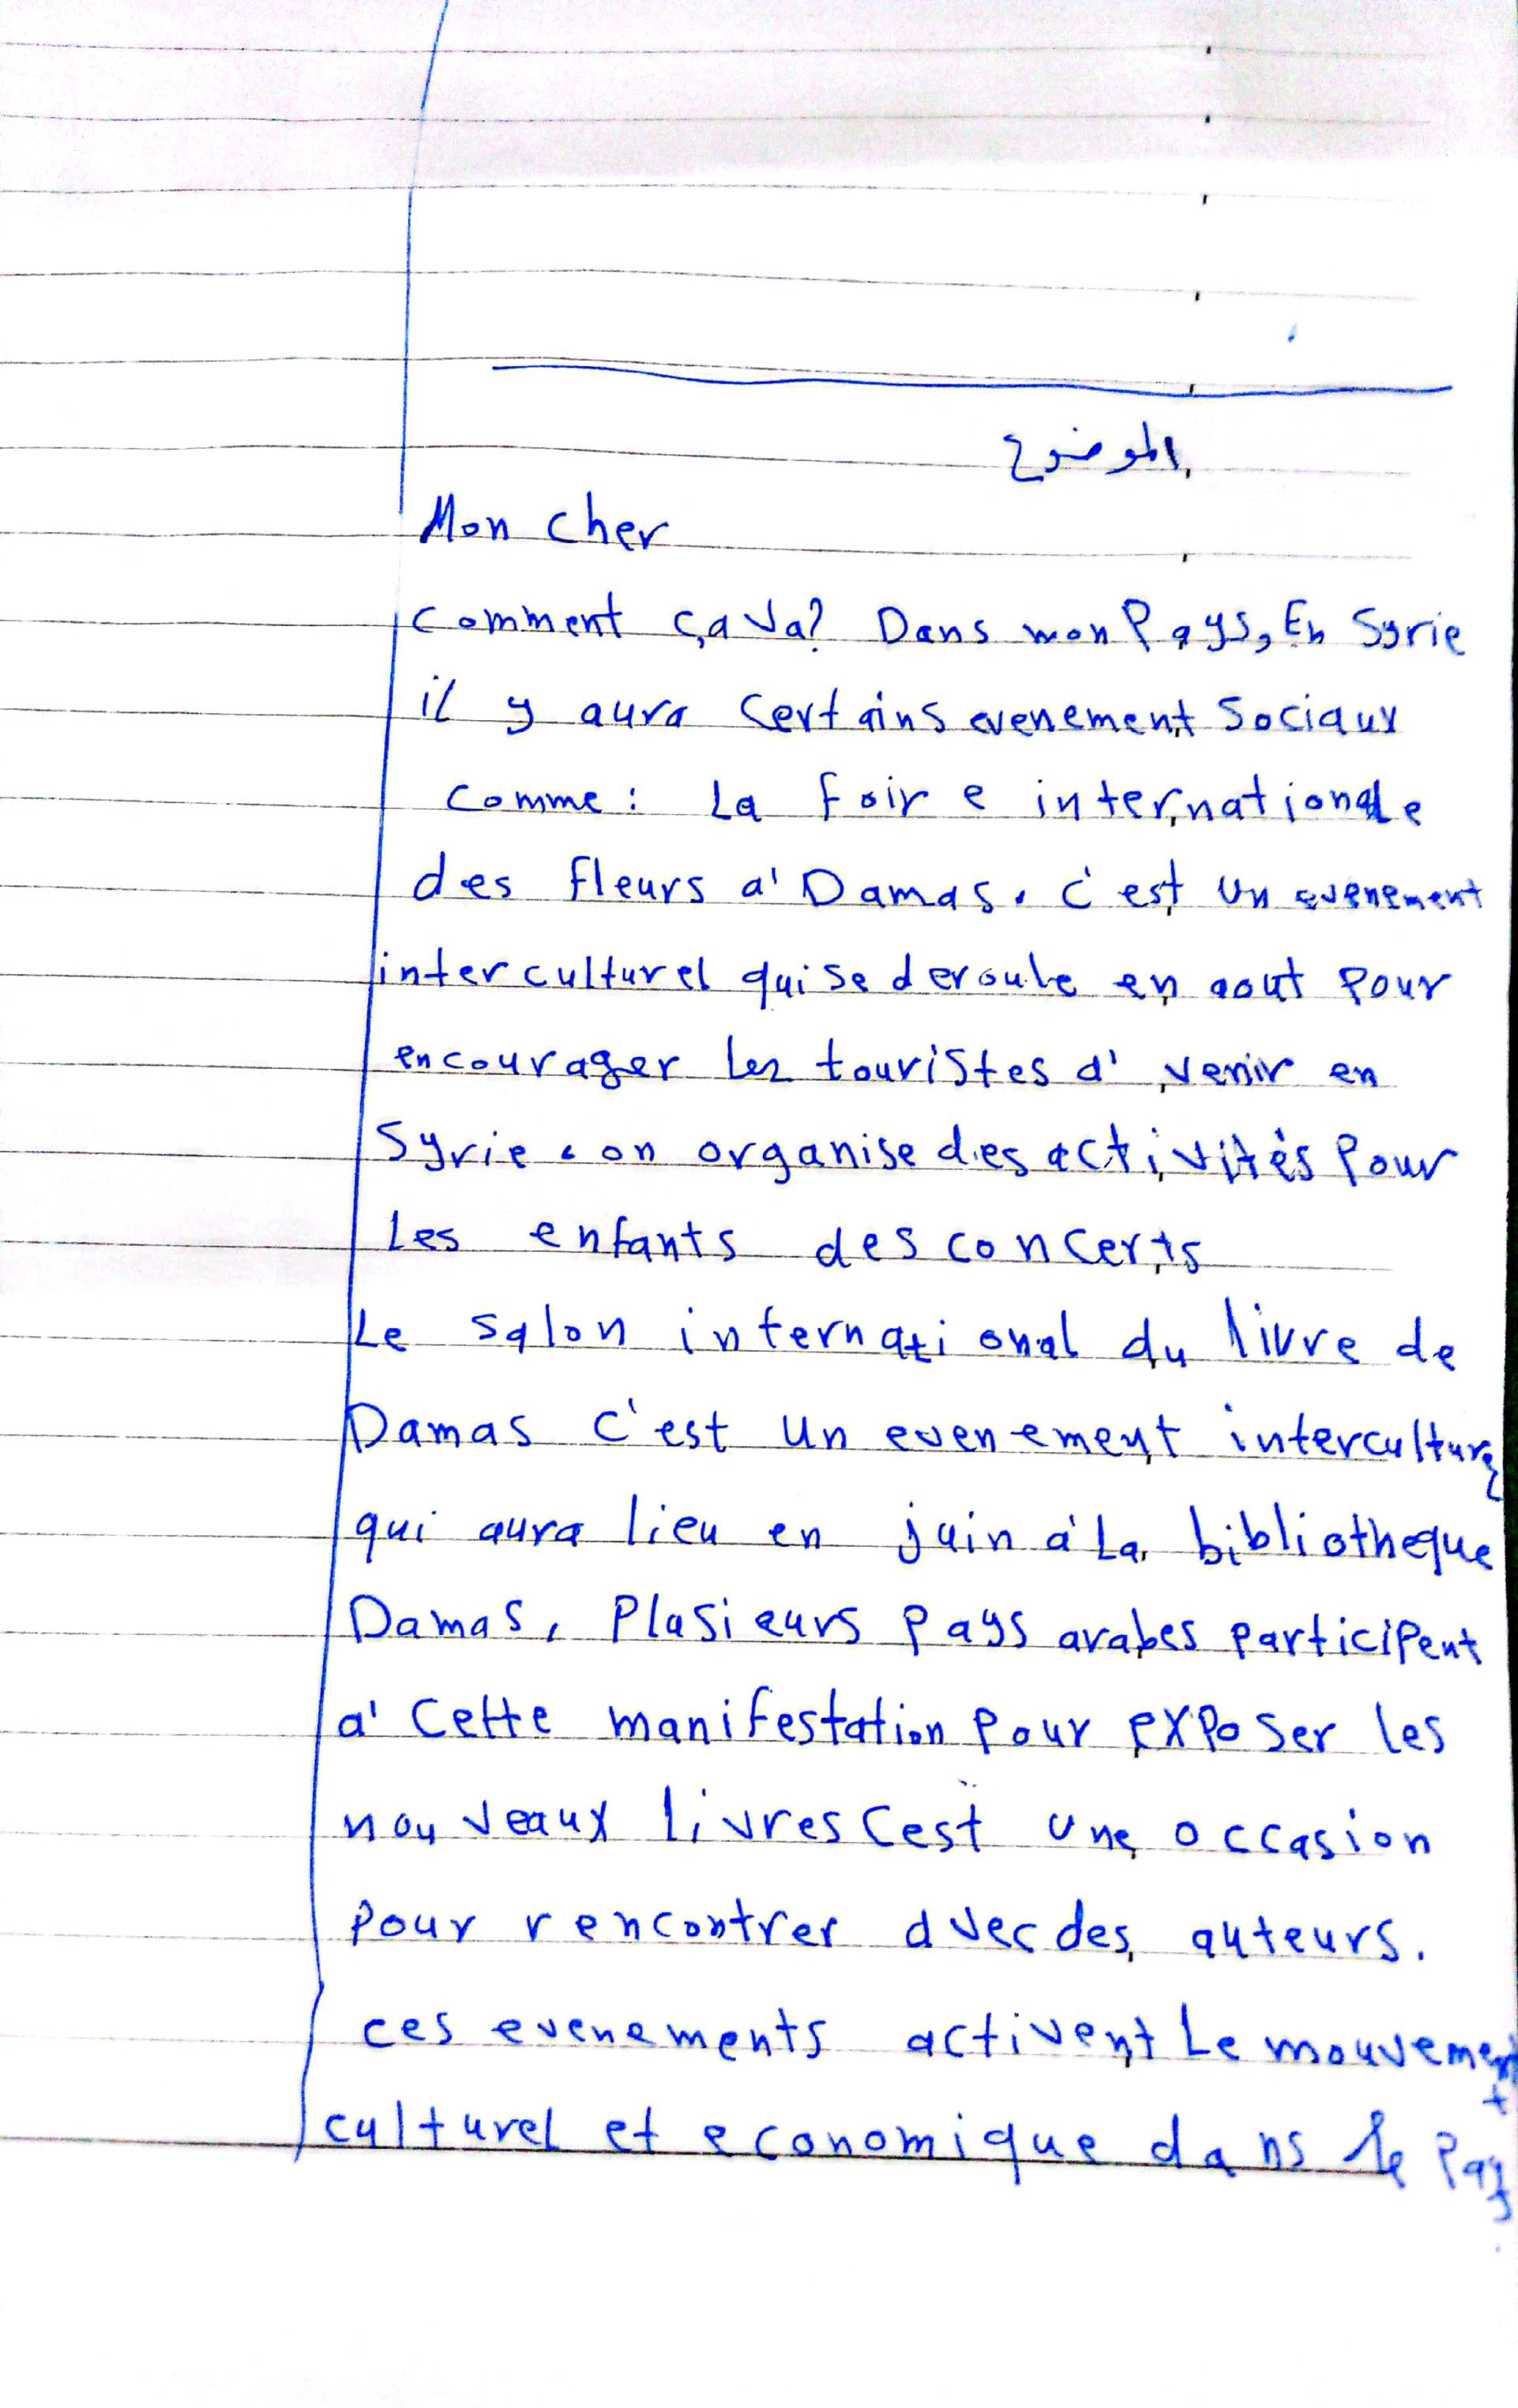 الموضوع
Mon cher
comment ça va? Dans mon Pays, En Syrie
il y aura certains evenement sociaux
comme: La foire internationale
des fleurs a' Damas. c'est un evenement
interculturel qui se deroule en aout pour
encourager les touristes d' venir en
Syrie. on organise des activités pour
les enfants des concerts
Le salon international du livre de
Damas c'est un evenement interculturel
qui aura lieu en juin a' La bibliotheque
Damas, Plusieurs pays arabes participent
a' cette manifestation pour exposer les
nouveaux livres Cest une occasion
pour rencontrer avec des auteurs.
ces evenements activent Le mouvement
culturel et economique dans le Pays